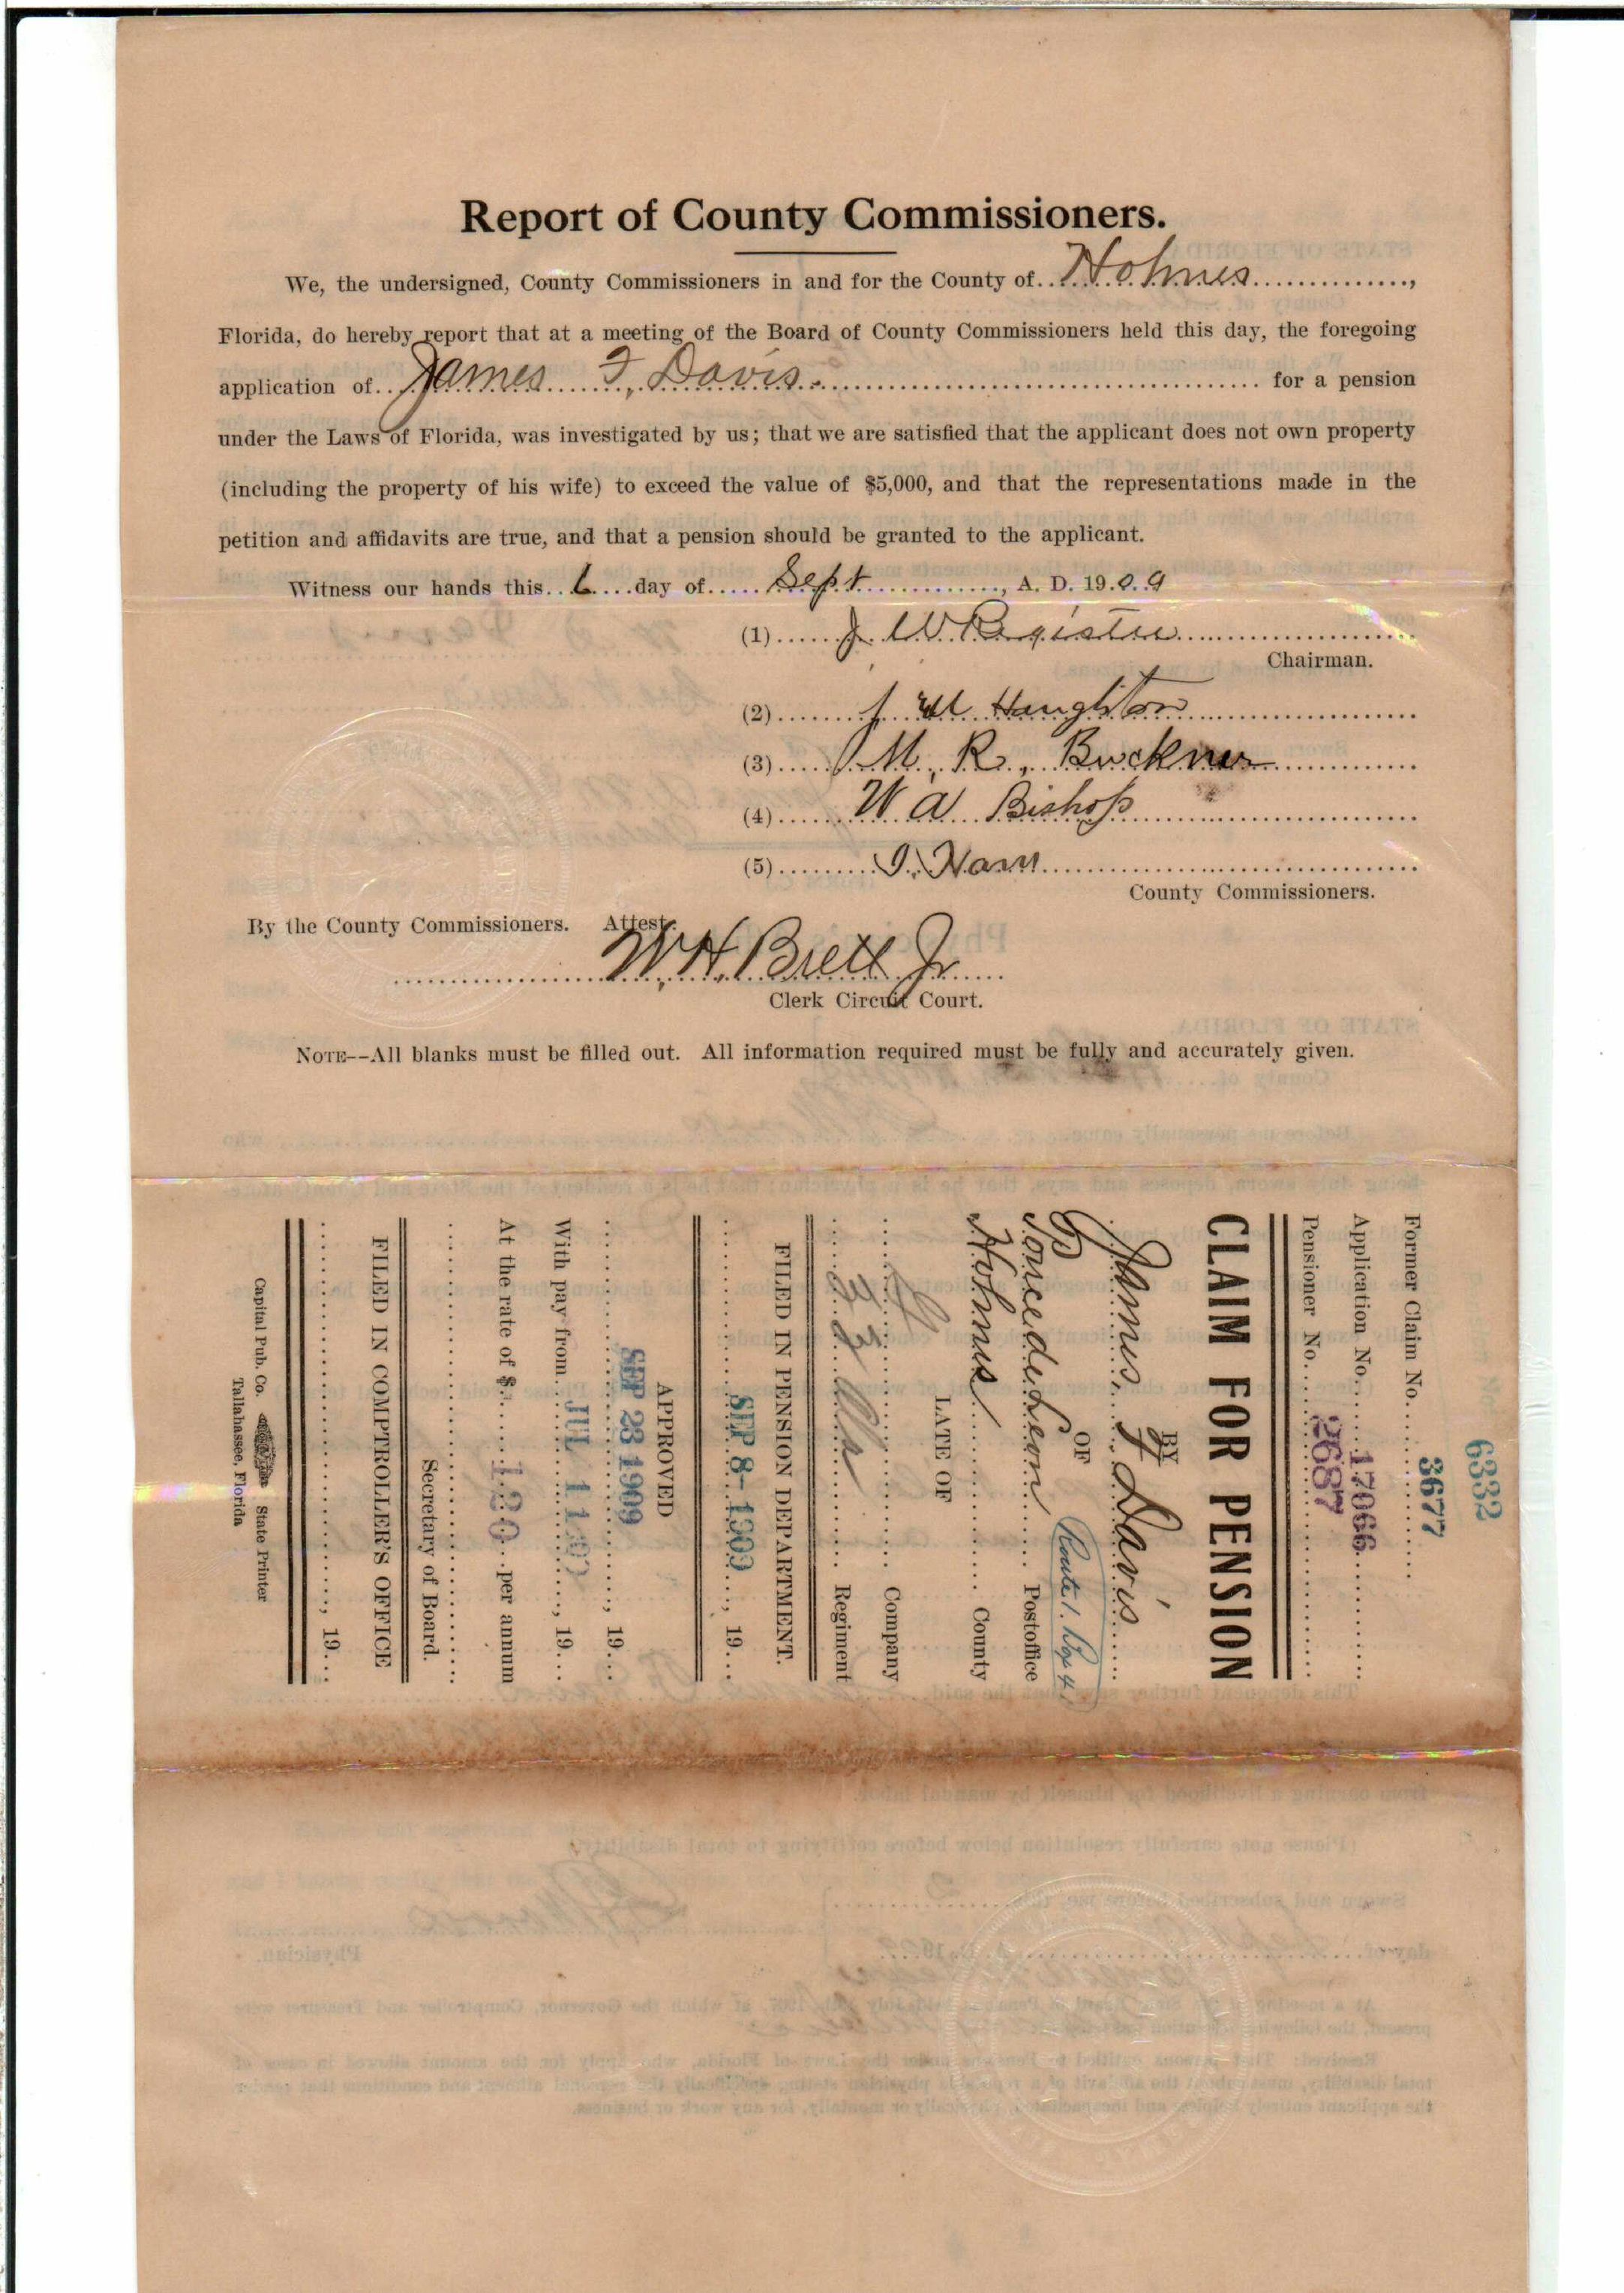 Report of County Commissioners.
We, the undersigned, County Commissioners in and for the County of Holmes,
Florida, do hereby report that at a meeting of the Board of County Commissioners held this day, the foregoing
application of James F. Davis for a pension
under the Laws of Florida, was investigated by us; that we are satisfied that the applicant does not own property
(including the property of his wife) to exceed the value of $5,000, and that the representations made in the
petition and affidavits are true, and that a pension should be granted to the applicant.
Witness our hands this 6 day of Sept, A. D. 1909
(1) J. W. Register
Chairman.
(2) J M Haughton
(3) M. R. Buckner
(4) W A Bishop
(5) Ham
County Commissioners.
By the County Commissioners. Attest:
W. H. Brett Jr
Clerk Circuit Court.
NOTE--All blanks must be filled out. All information required must be fully and accurately given.
6332
Former Claim No. 3677
Application No. 17066
Pensioner No. 2687
CLAIM FOR PENSION
BY
James F. Davis
OF
Route 1. Box 4
Ponce de Leon Postoffice
Holmes County
LATE OF
Company
Ala Regiment
FILED IN PENSION DEPARTMENT.
SEP 8- 1909, 19
APPROVED
SEP 23 1909, 19
With pay from JUL 1 1909, 19
At the rate of $ 120 per annum
Secretary of Board.
FILED IN COMPTROLLER'S OFFICE
, 19
Capital Pub. Co. State Printer
Tallahassee, Florida